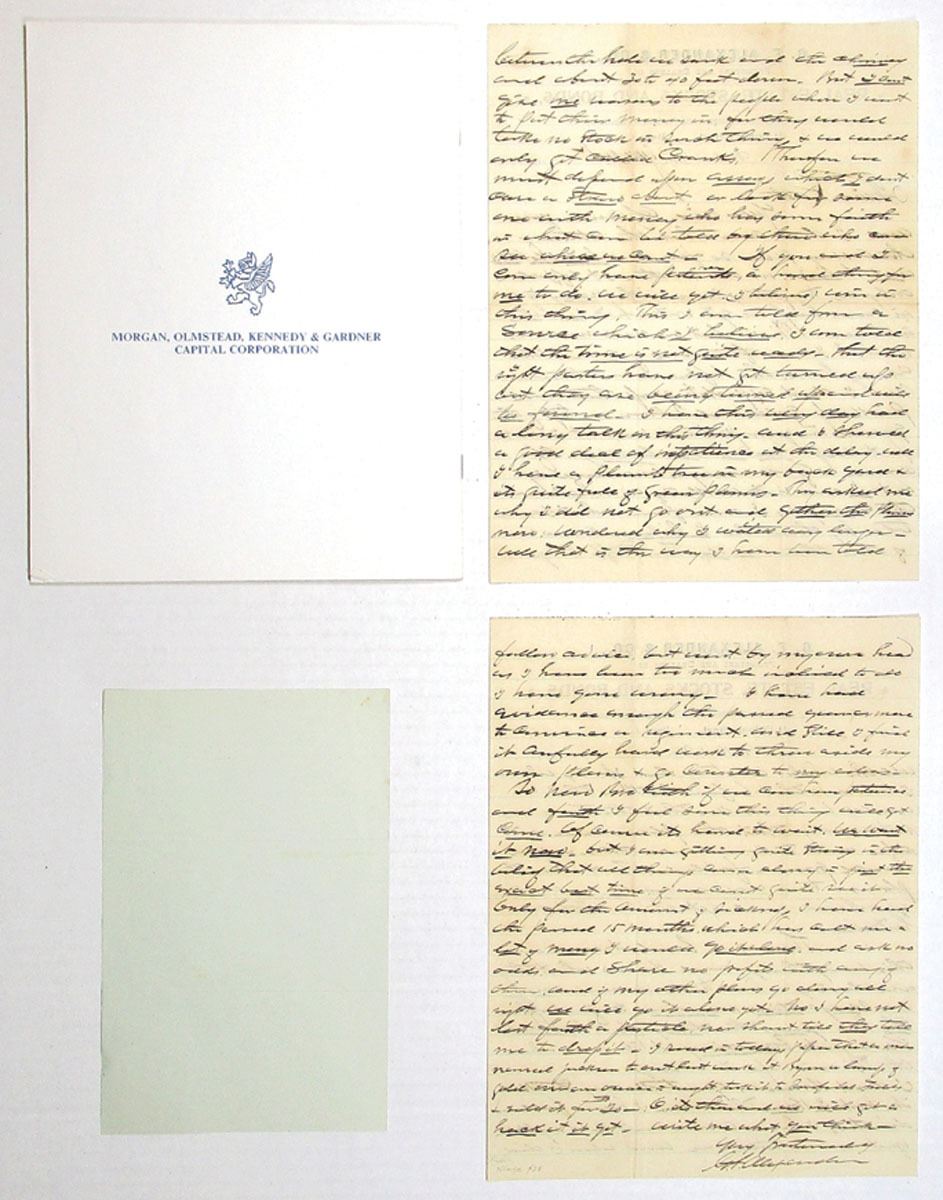 MORGAN, OLMSTEAD, KENNEDY & GARDNER
CAPITAL CORPORATION
between the hole we sunk and the
and about 30 to 40 feet down. But I don't
give me reasons to the people when I want
to put their money in, for they would
take no stock in such things & we would
only get called Cranks. Therefore we
must depend upon assays which I don't
care a straw about, or look for some
one with money who has some faith
in what can be told by those who can
see where we can't - If you and I
can only have patience, a hard thing for
me to do, we will yet, I believe, win in
this thing. This I am told from a
source which I believe. I am told
that the time is not quite ready - that the
right parties have not got turned up
but they are being turned up and will
be found. I have this very day had
a long talk on this thing - and I showed
a good deal of impatience at the delay. well
I have a plum tree in my back yard &
its quite full of green plums - They asked me
why I did not go out and gather the plums
now; wondered why I waited any longer -
well that is the way I have been told
follow advice, but went by my own head
as I have been too much inclined to do
I have gone wrong - I have had
evidence enough the passed year or more
to convince a regiment. and still I find
it awfully hard work to throw aside my
own plans & go counter to my ideas -
So now Bro if we can have patience
and faith I feel sure this thing will yet
come. Of course its hard to wait. We want
it now - but I am getting quite strong in the
belief that all things come along in just the
exact best time, if we can't quite see it
Only for the amount of sickness I have had
the passed 15 months which has cost me a
lot of money I would go it alone and ask no
odds, and share no profits with any of
them, and if my other plans go along all
right we will go it alone yet - No I have not
lost faith a particle nor shant till they tell
me to drop it - I read in todays paper that a man
named
gold
& sold it for
back it it yet - write me what you think -
Very Fraternally
Alexander